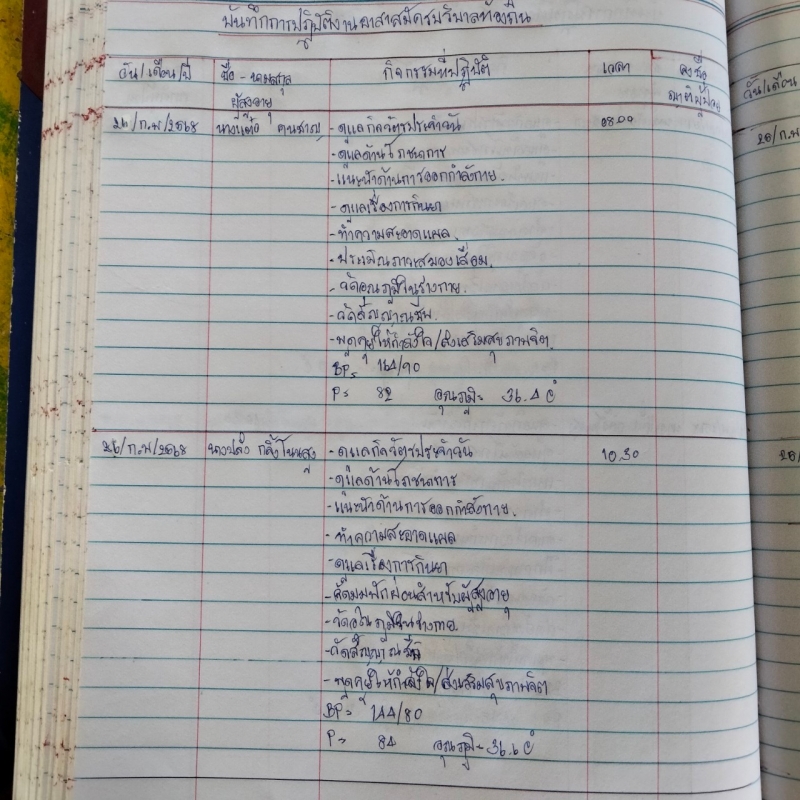 บันทึกการปฏิบัติงานอาสาสมัครบริบาลท้องถิ่น
วัน/เดือน/ปี ชื่อ - นามสกุล ผู้สูงอายุ กิจกรรมที่ปฏิบัติ เวลา ลงชื่อ ญาติผู้ป่วย
26/ก.พ/2568 - ดูแลกิจวัตรประจำวัน 08.00
- ดูแลด้านโภชนาการ
- แนะนำด้านการออกกำลังกาย.
- ดูแลเรื่องการกินยา
- ทำความสะอาดแผล.
- ประเมินภาวะสมองเสื่อม.
- วัดอุณภูมิในร่างกาย.
- วัดสัญญาณชีพ.
- พูดคุยให้กำลังใจ/ส่งเสริมสุขภาพจิต.
BP= 164/90
P= 82 อุณภูมิ= 36.4 c̊
26/ก.พ/2568 - ดูแลกิจวัตรประจำวัน 10.30
- ดูแลด้านโภชนาการ
- แนะนำด้านการออกกำลังกาย.
- ทำความสะอาดแผล
- ดูแลเรื่องการกินยา
- จัดมุมพักผ่อนสำหรับผู้สูงอายุ
- วัดอุณภูมิในร่างกาย.
- วัดสัญญาณชีพ
- พูดคุยให้กำลังใจ/ส่งเสริมสุขภาพจิต
BP= 144/80
P= 84 อุณภูมิ= 36.6 c̊
วัน/เดือน